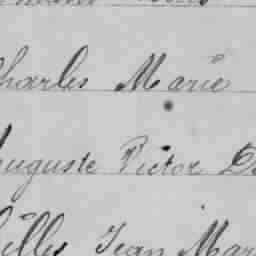 Charles Marie
Auguste Victor
Gilles Jean Mar